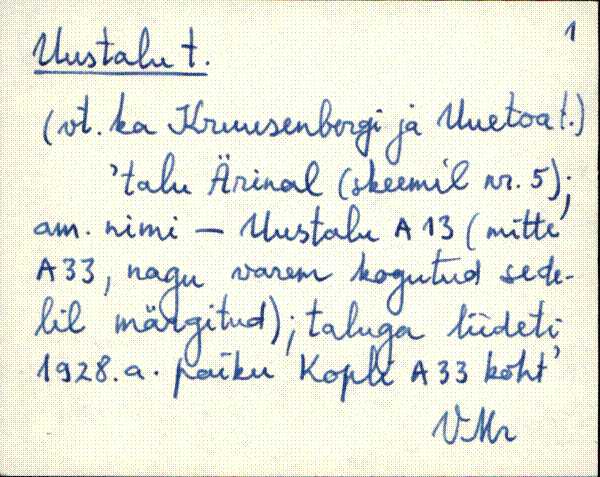 1
Uustalu t.
(vt. ka Kruusenbergi ja Uuetoa t.)
'talu Ärinal (skeemil nr. 5);
am. nimi — Uustalu A 13 (mitte
A 33, nagu varem kogutud sede-
lil märgitud); taluga liideti
1928. a. paiku Kopli A 33 koht'
VMr